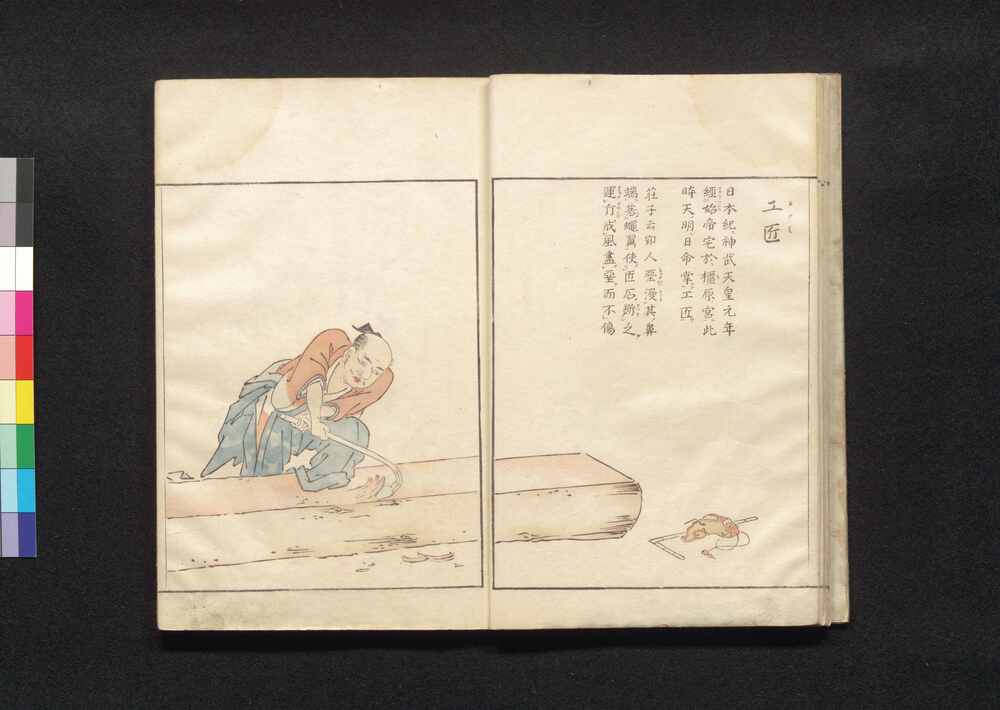 工匠
日本紀神武天皇元年
經始帝宅於橿原宮此
時天明日命掌工匠
莊子云郢人堊漫其鼻
端若蠅翼使匠石斲之
運斤成風盡堊而不傷